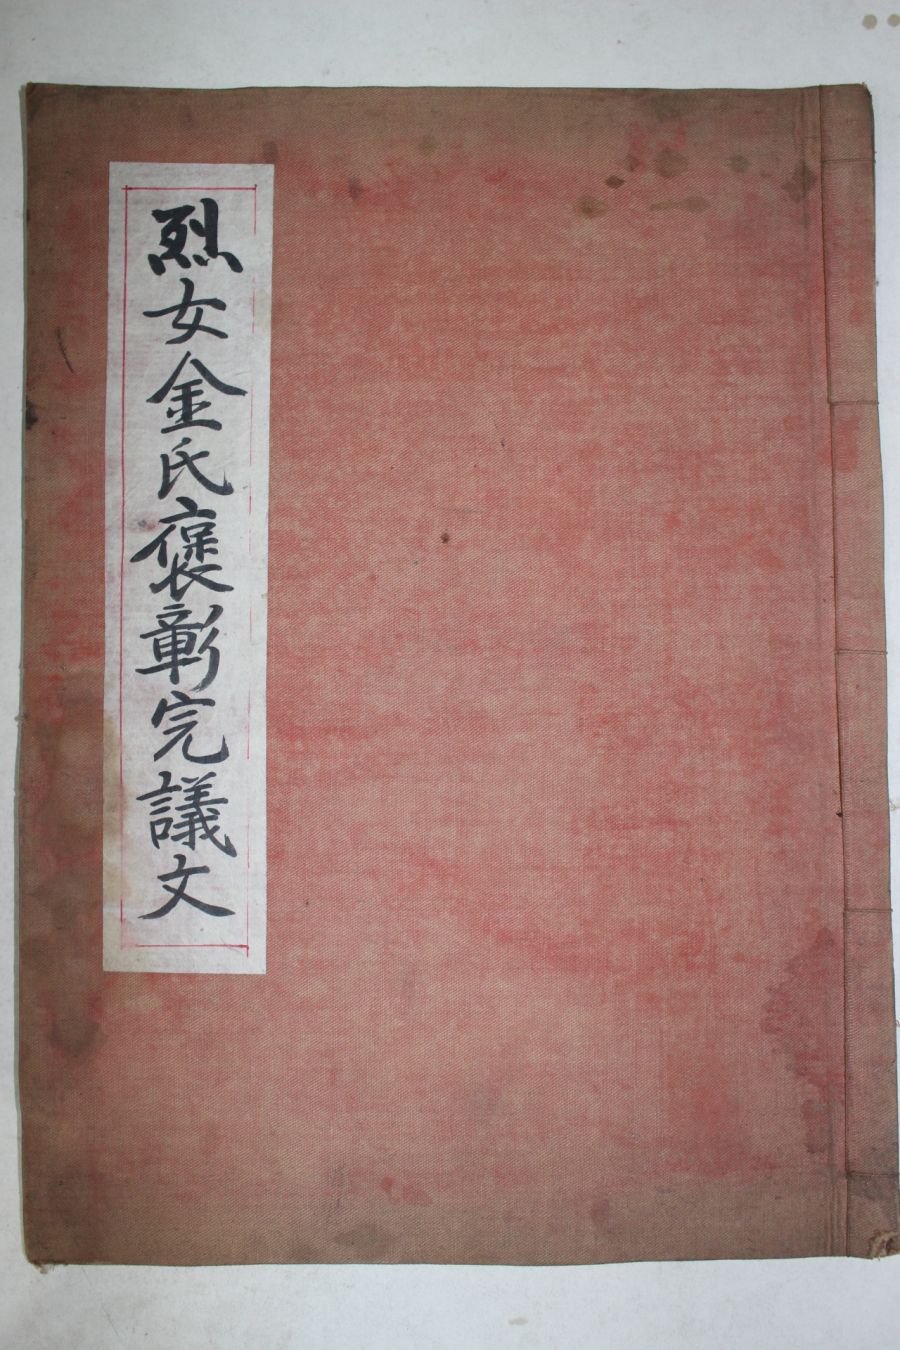 烈女金氏褒彰完議文